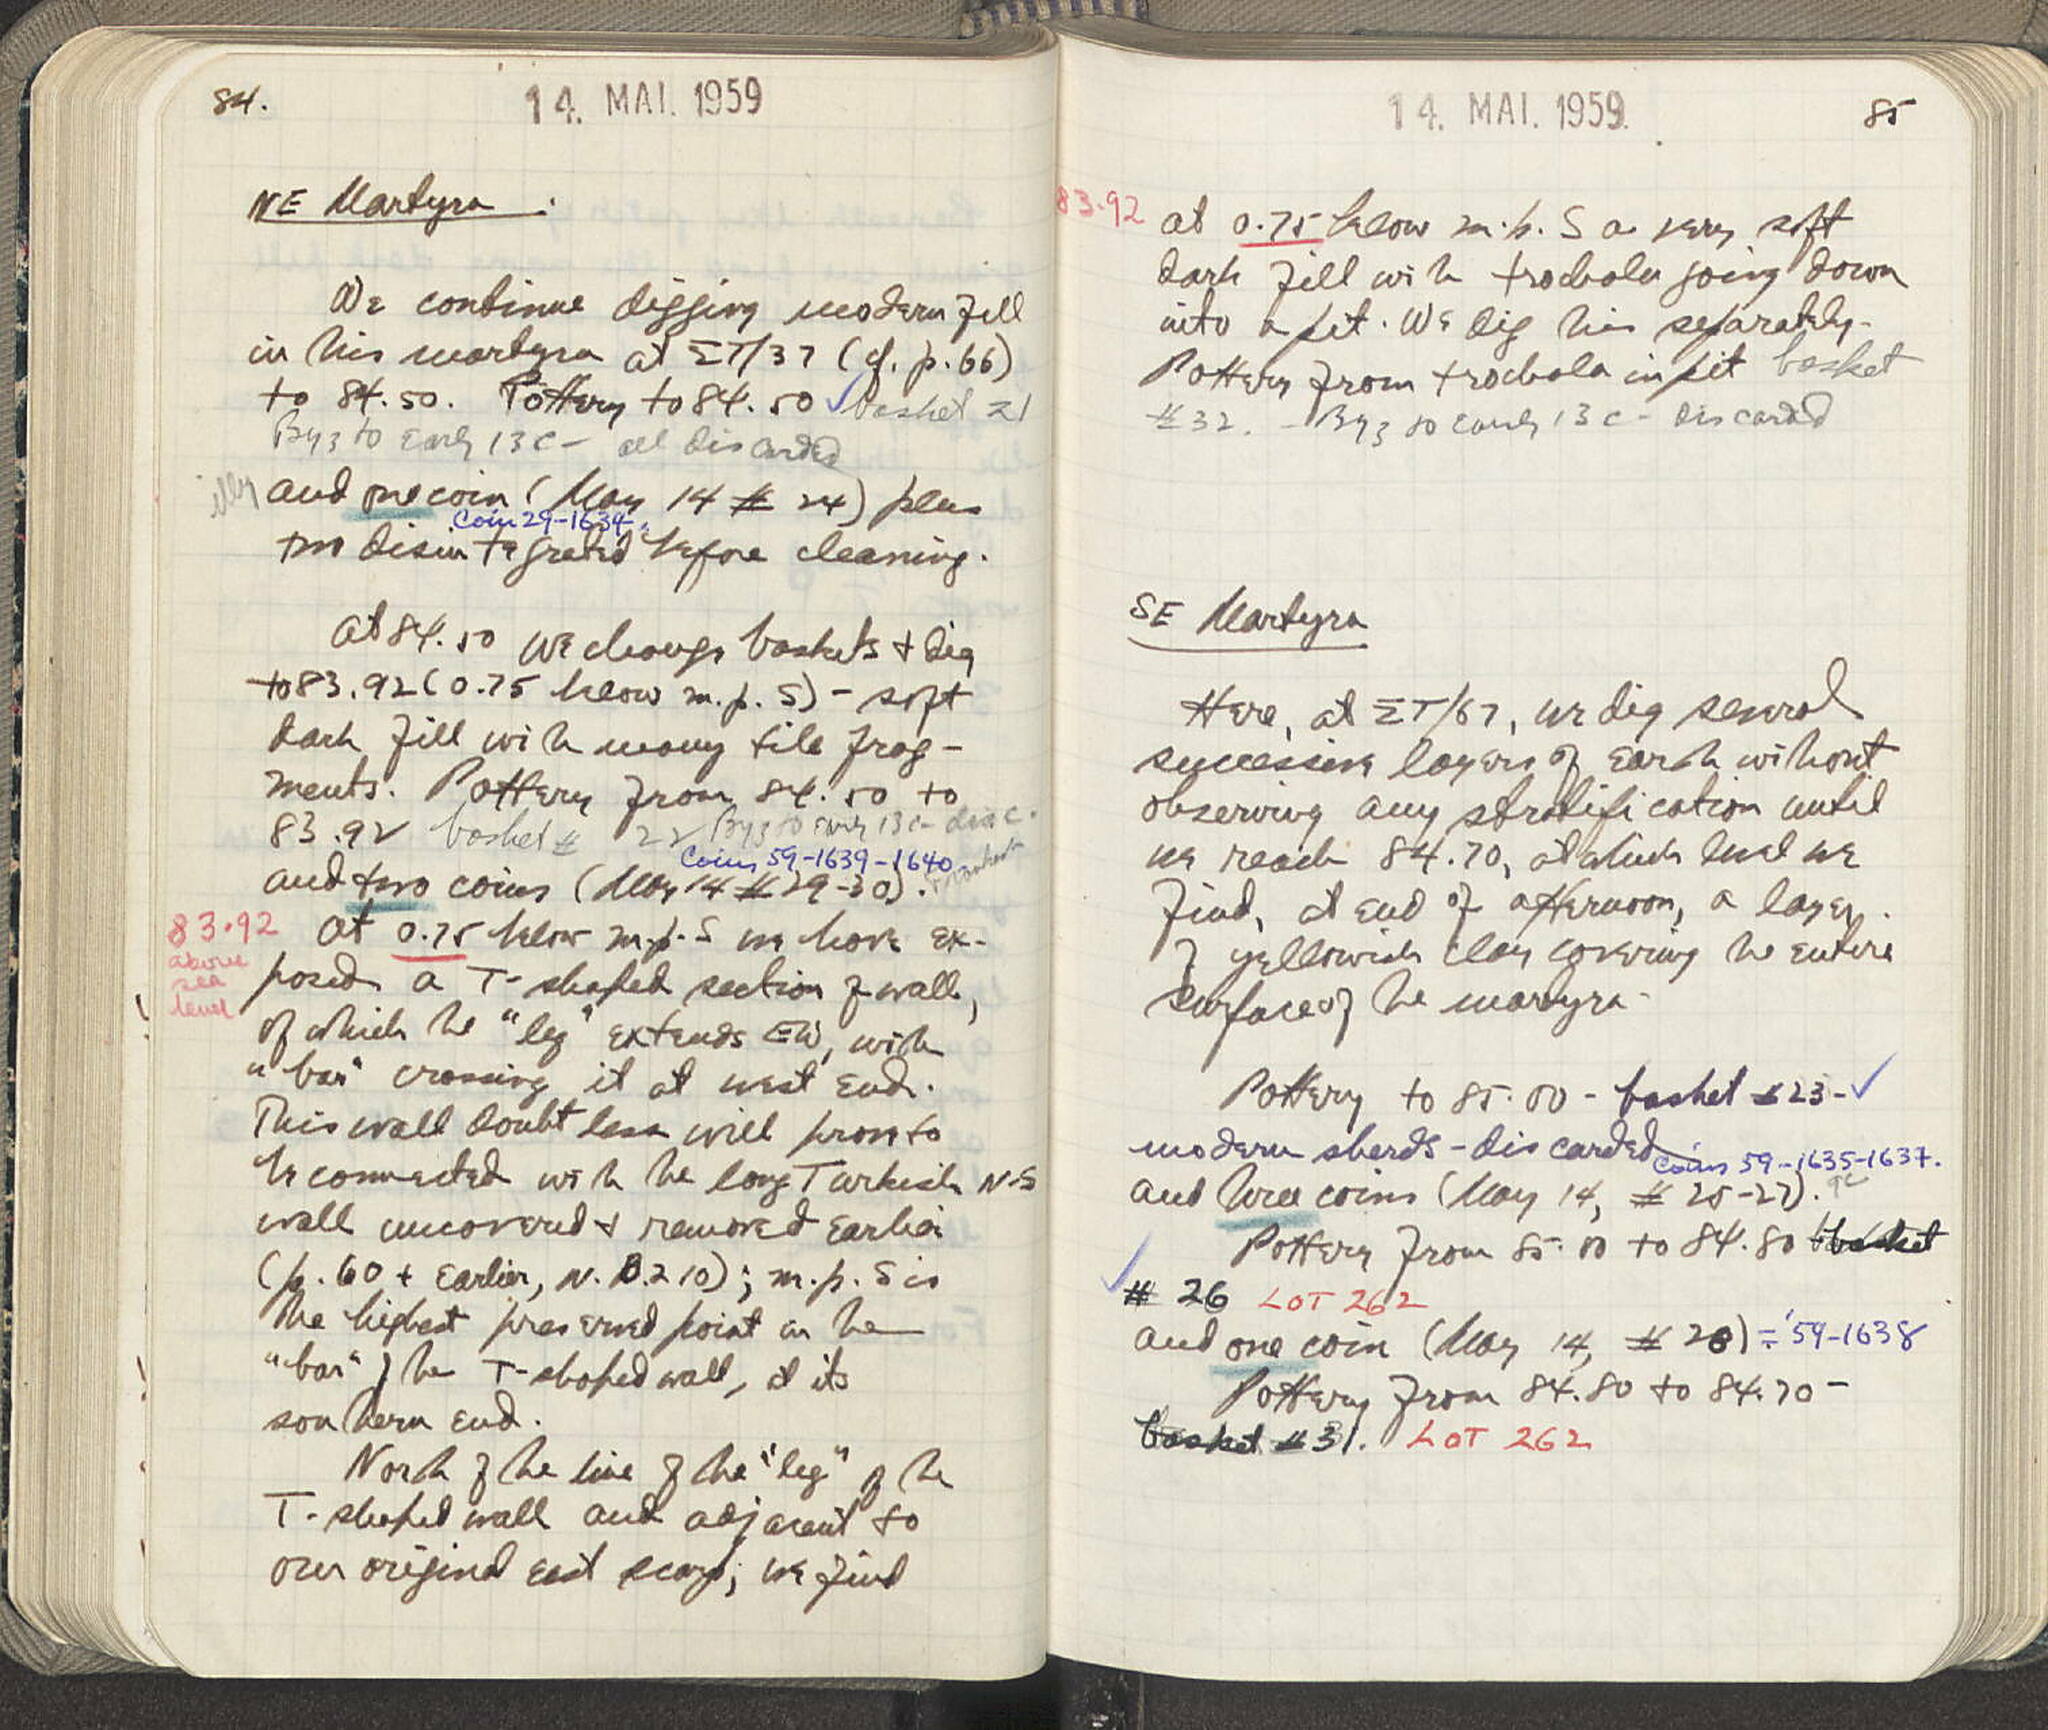 84.
14. MAI. 1959
NE Martyra :
We continue digging modern fill
in this martyra at ΣΤ/37 (cf. p.66)
to 84.50. Pottery to 84.50 ✓ basket 21
Byz to Early 13 C - all discarded
illeg and one coin (May 14 # 24) plus
Coin 29-1634
two disintegrated before cleaning.
At 84.50 we change baskets + dig
to 83.92 (0.75 below m.p. S) - soft
dark fill with many tile frag-
ments. Pottery from 84.50 to
83.92 basket # 22 Byz to Early 13 C - disc.
Coins 59-1639-1640
and two coins (May 14 # 29-30).
83.92
above
sea
level
At 0.75 below m.p. S we have ex-
posed a T-shaped section of wall,
of which the "leg" extends EW, with
"bar" crossing it at west end.
This wall doubtless will prove to
be connected with the long Turkish N-S
wall uncovered + removed earlier
(p. 60 + earlier, N.B. 210); m.p. S is
the highest preserved point on the
"bar" of the T-shaped wall, at its
southern end.
North of the line of the "leg" of the
T-shaped wall and adjacent to
our original east scarp, we find
14. MAI. 1959
85
83.92
at 0.75 below m.p. S a very soft
dark fill with trochala going down
into a pit. We dig this separately.
Pottery from trochala in pit basket
#32. - Byz to Early 13 C - discarded
SE Martyra
Here, at ΣΤ/67, we dig several
successive layers of earth without
observing any stratification until
we reach 84.70, at which level we
find, at end of afternoon, a layer
of yellowish clay covering the entire
surface of the martyra.
Pottery to 85.00 - basket #23 - ✓
modern sherds - discarded
Coins 59-1635-1637.
and three coins (May 14, # 25-27).
Pottery from 85.00 to 84.80 basket
✓ # 26 LOT 262
and one coin (May 14, # 28) = 59-1638
Pottery from 84.80 to 84.70 -
basket #31. LOT 262